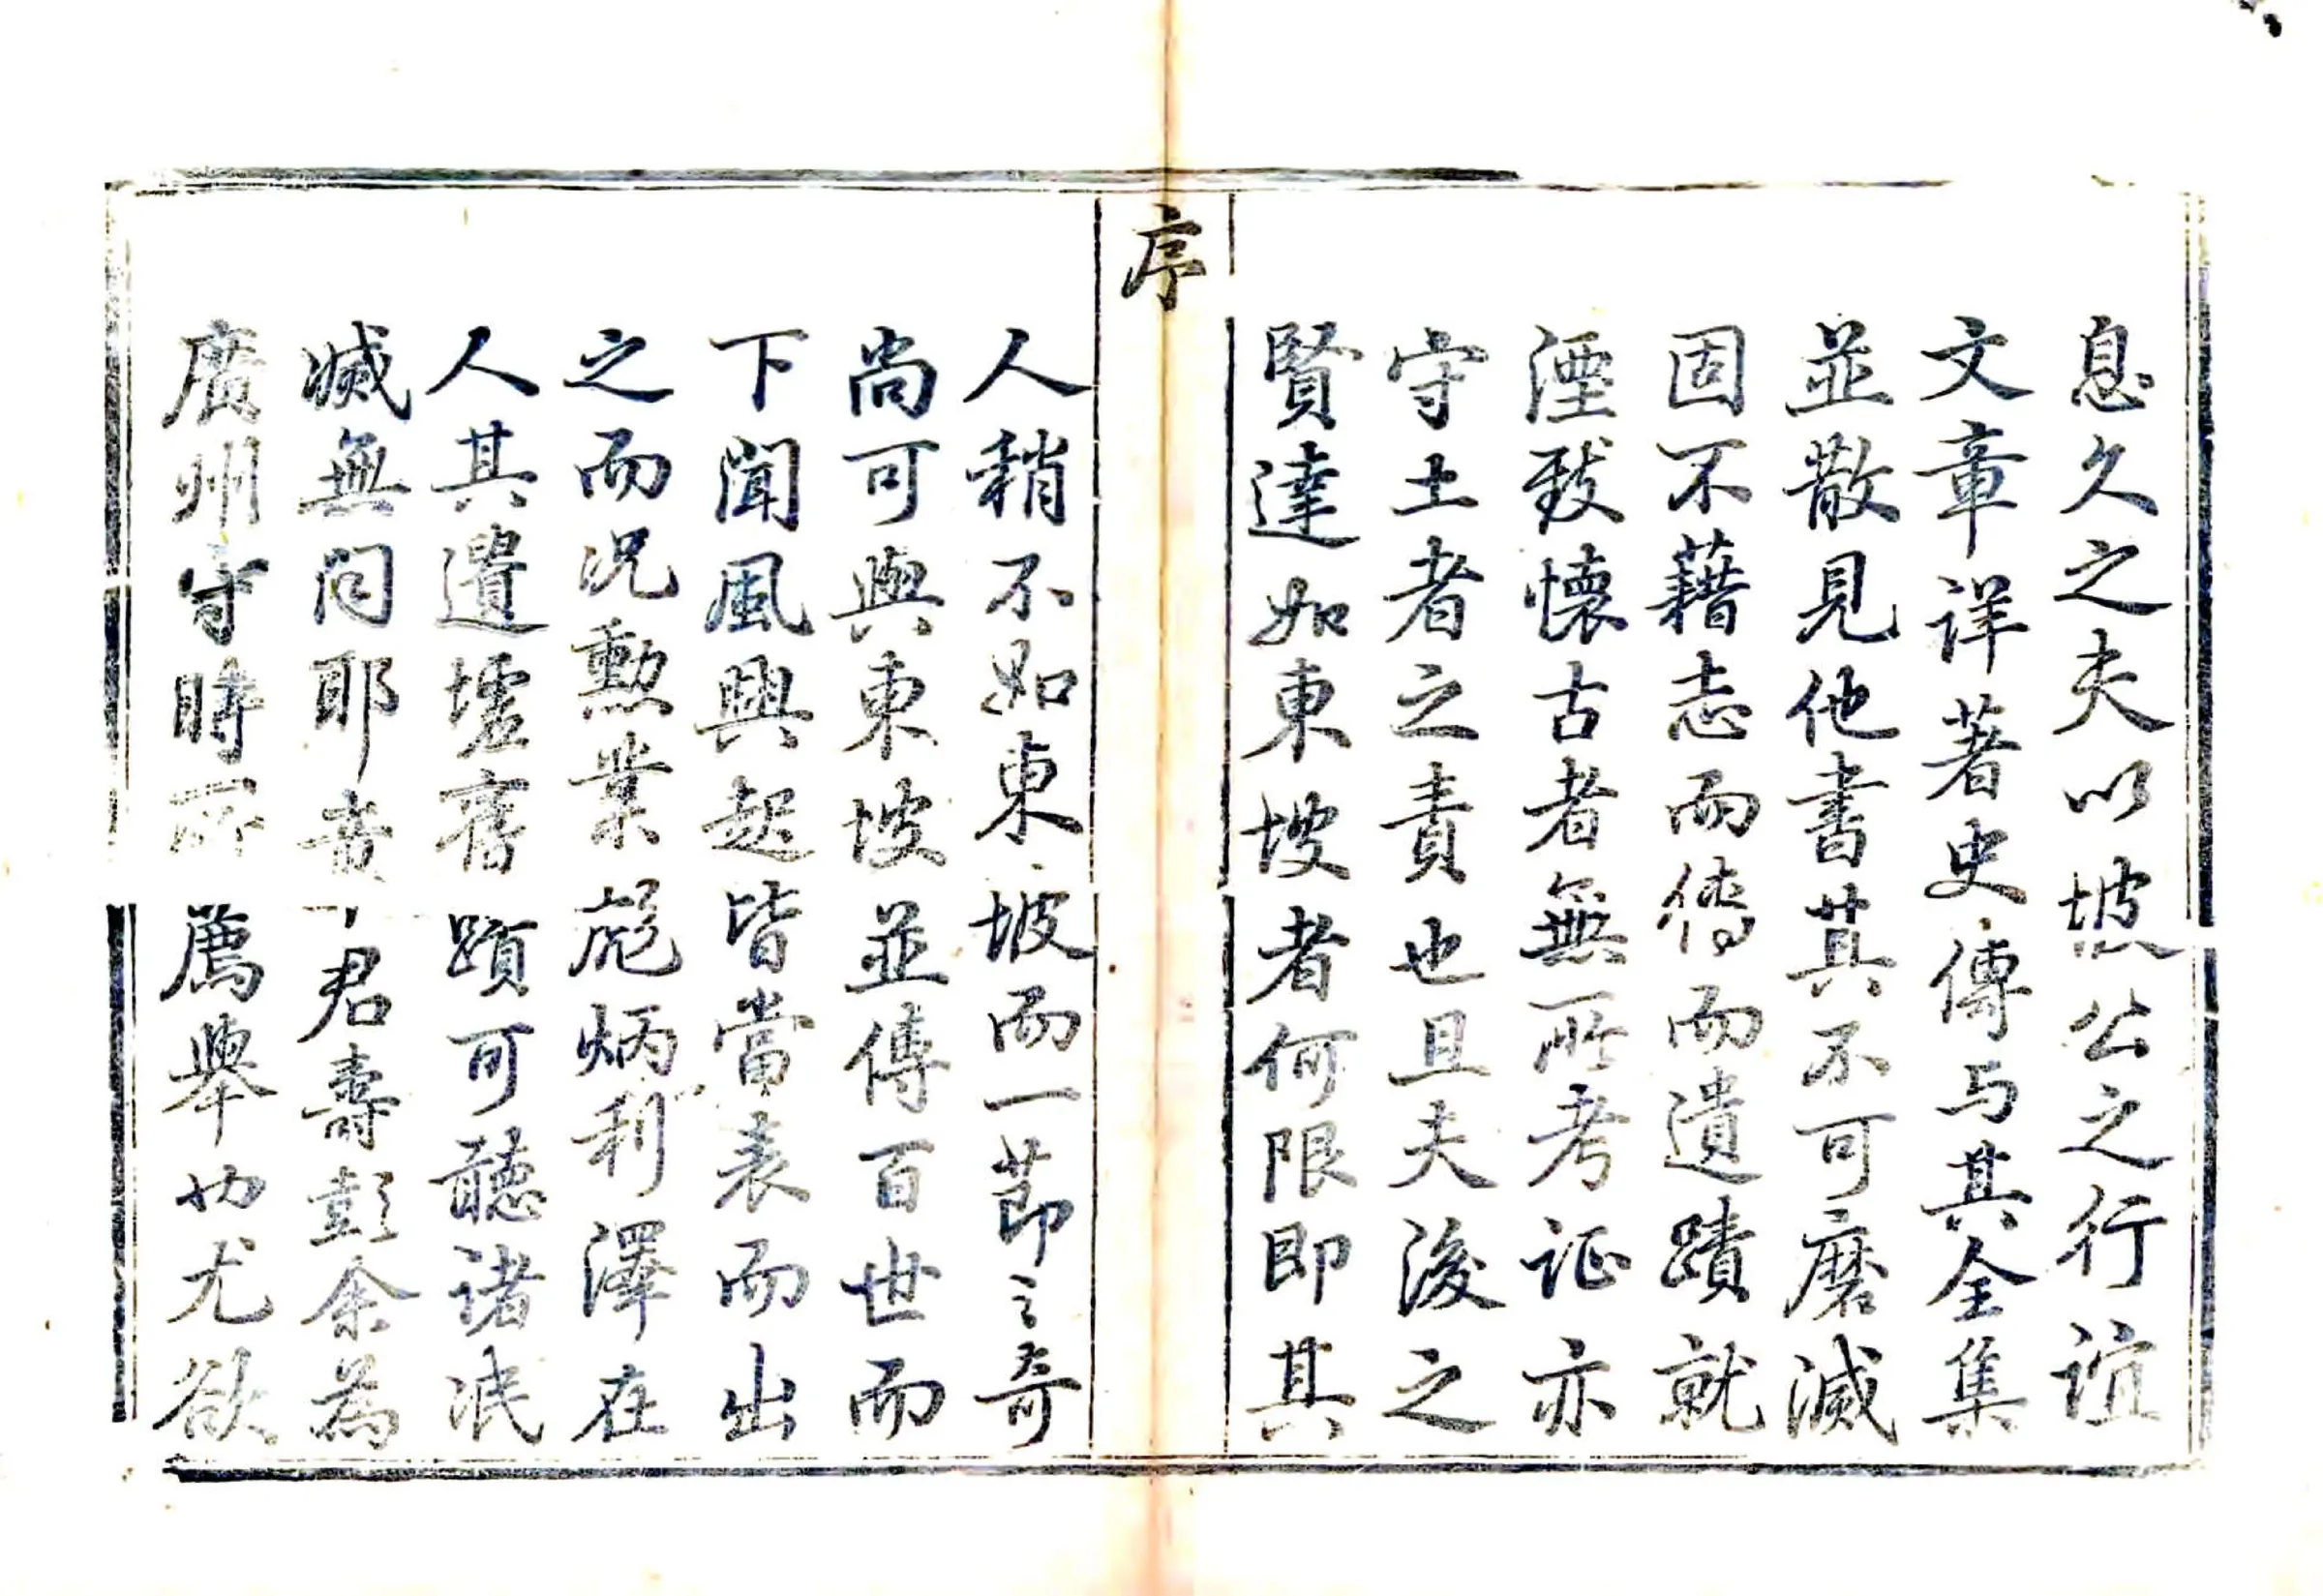 息久之夫以坡公之行誼
文章詳著史傳与其全集
並散見他書其不可磨滅
固不藉志而傳而遺蹟就
湮致懷古者無所考证亦
守土者之責也且夫後之
賢達如東坡者何限即其
序
人稍不如東坡而一節之奇
尚可與東坡並傳百世而
下聞風興起皆當表而出
之而況勲業彪炳利澤在
人其遺墟舊蹟可聽諸泯
滅無问耶 君壽彭余為
廣州守時所薦舉也尤欲